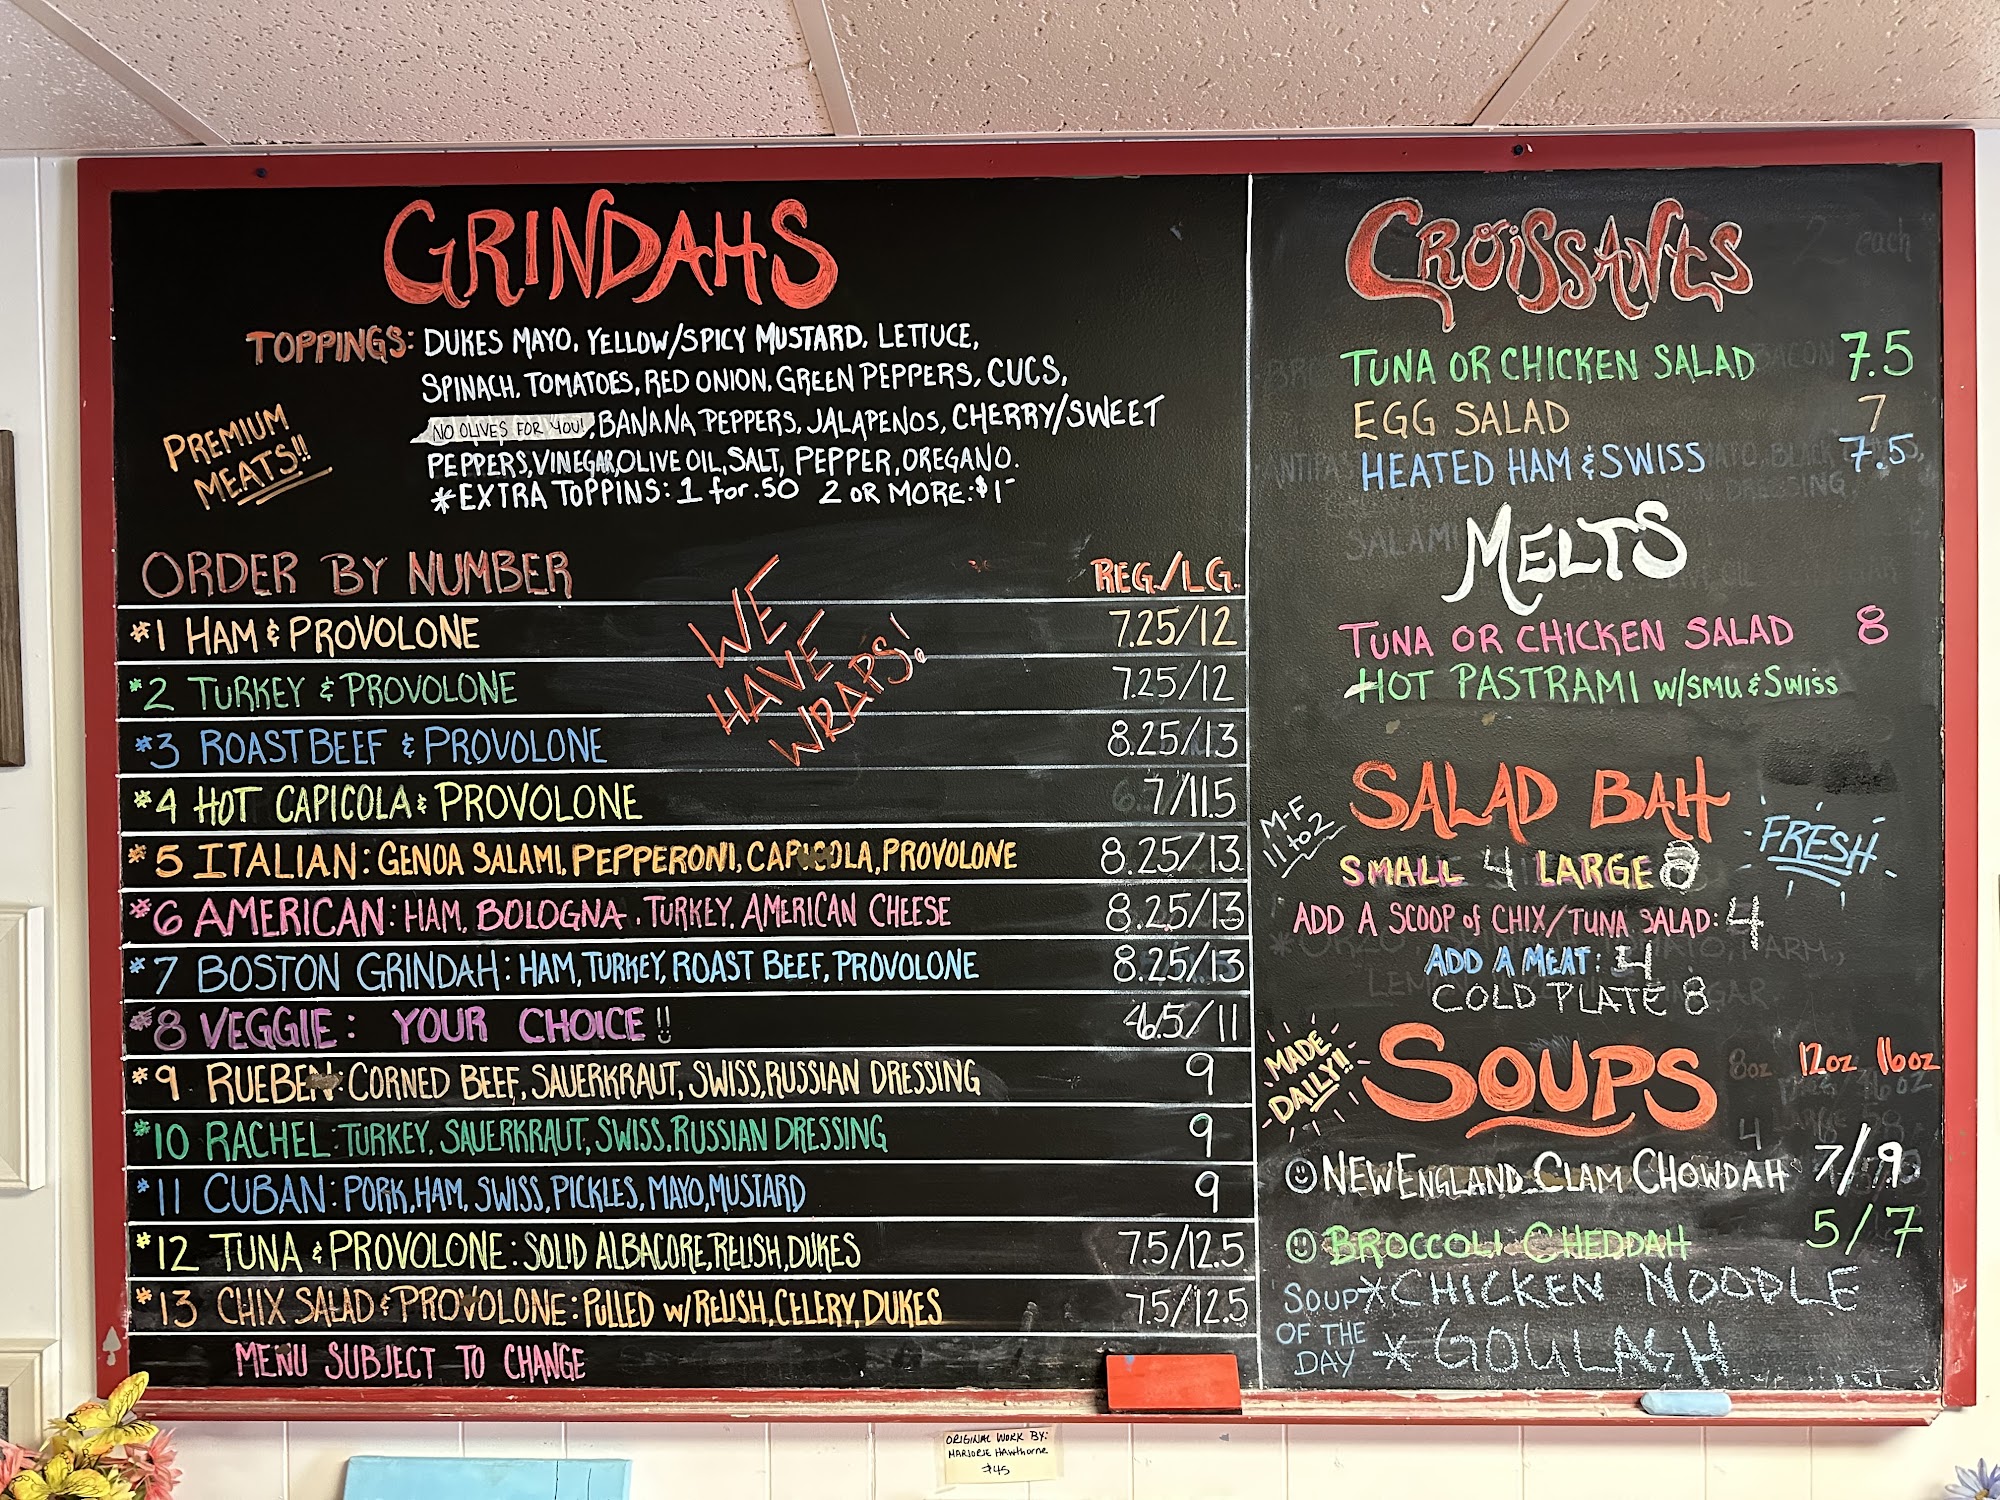 GRINDAHS
TOPPINGS: DUKES MAYO, YELLOW/SPICY MUSTARD, LETTUCE,
SPINACH, TOMATOES, RED ONION, GREEN PEPPERS, CUCS,
NO OLIVES FOR YOU!, BANANA PEPPERS, JALAPENOS, CHERRY/SWEET
PEPPERS, VINEGAR, OLIVE OIL, SALT, PEPPER, OREGANO.
*EXTRA TOPPINS: 1 for .50 2 OR MORE: $1-
PREMIUM
MEATS!!
ORDER BY NUMBER REG./LG.
WE
HAVE
WRAPS!
#1 HAM & PROVOLONE 7.25/12
#2 TURKEY & PROVOLONE 7.25/12
#3 ROAST BEEF & PROVOLONE 8.25/13
#4 HOT CAPICOLA & PROVOLONE 7/11.5
#5 ITALIAN: GENOA SALAMI, PEPPERONI, CAPICOLA, PROVOLONE 8.25/13
#6 AMERICAN: HAM, BOLOGNA, TURKEY, AMERICAN CHEESE 8.25/13
#7 BOSTON GRINDAH: HAM, TURKEY, ROAST BEEF, PROVOLONE 8.25/13
#8 VEGGIE: YOUR CHOICE!! /11
#9 RUEBEN: CORNED BEEF, SAUERKRAUT, SWISS, RUSSIAN DRESSING 9
#10 RACHEL: TURKEY, SAUERKRAUT, SWISS, RUSSIAN DRESSING 9
#11 CUBAN: PORK, HAM, SWISS, PICKLES, MAYO, MUSTARD 9
#12 TUNA & PROVOLONE: SOLID ALBACORE, RELISH, DUKES 7.5/12.5
#13 CHIX SALAD & PROVOLONE: PULLED W/RELISH, CELERY, DUKES 7.5/12.5
MENU SUBJECT TO CHANGE
CROISSANTS
2 each
TUNA OR CHICKEN SALAD 7.5
EGG SALAD 7
HEATED HAM & SWISS 7.5
MELTS
TUNA OR CHICKEN SALAD 8
HOT PASTRAMI W/SMU & SWISS
SALAD BAH
M-F
11 to 2
FRESH
SMALL 4 LARGE 8
ADD A SCOOP of CHIX/TUNA SALAD: 4
ADD A MEAT: 4
COLD PLATE 8
MADE
DAILY!!
SOUPS 8oz 12oz 16oz
NEW ENGLAND CLAM CHOWDAH 7/9
BROCCOLI CHEDDAH 5/7
SOUP
OF THE
DAY
*CHICKEN NOODLE
*GOULASH
ORIGINAL WORK BY:
MARJORIE HAWTHORNE
$45